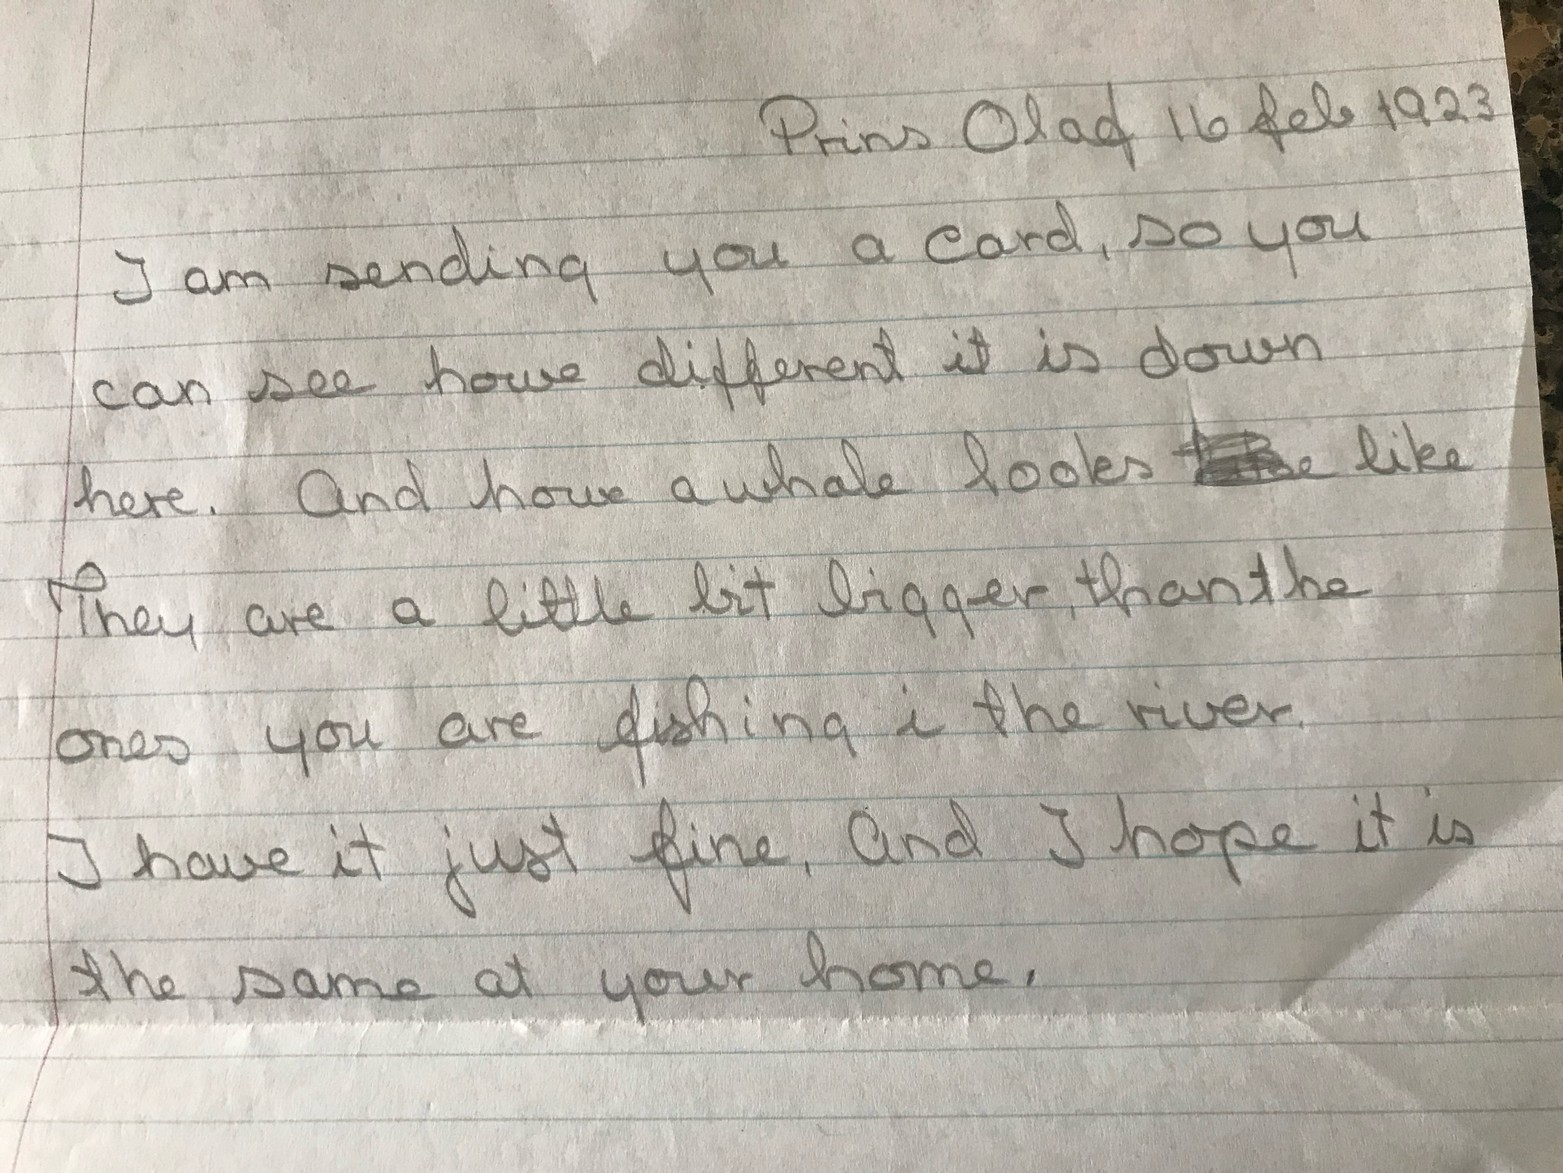 Prins Olaf 16 feb 1923
I am sending you a card, so you
can see howe different it is down
here. And howe a whale looks like
They are a little bit bigger, than the
ones you are fishing i the river.
I have it just fine, and I hope it is
the same at your home.